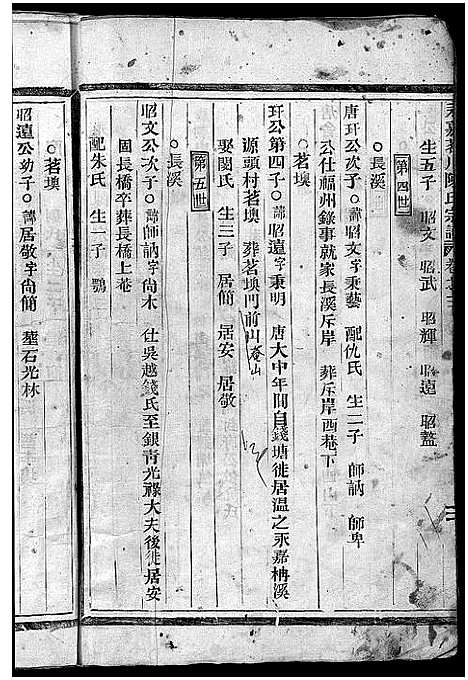 陳氏宗譜
生五子 昭文 昭武 昭輝 昭遠 昭盤
第四世
○長溪
唐玕公次子○諱昭文字秉藝 配仇氏 生二子 師訥 師卑
公仕福州錄事就家長溪斥岸 葬斥岸西巷下
○茗墺
玕公第四子○諱昭遠字秉明 唐大中年間自錢塘徙居溫之永嘉柟溪
源頭村茗墺 葬茗墺門前山
娶閔氏 生三子 居簡 居安 居敬
第五世
○長溪
昭文公次子○諱師訥字尚木 仕吳越錢氏至銀青光祿大夫後徙居安
固長橋卒葬長橋上菴
配朱氏 生一子 鶚
○茗墺
昭遠公幼子○諱居敬字尚簡 墓石光林